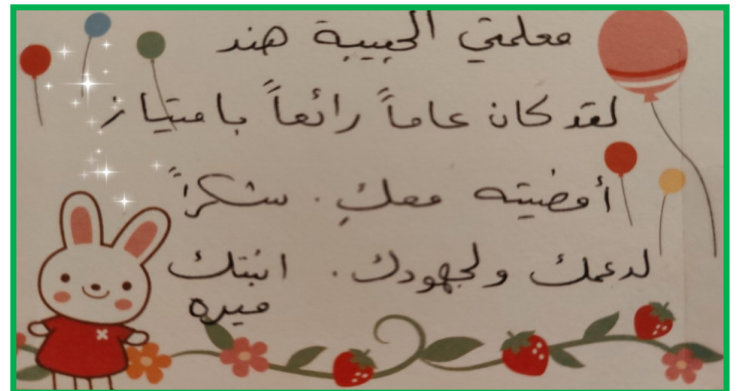 معلمتي الحبيبة هند
لقد كان عاماً رائعاً بامتياز
أمضيته معكِ. شكراً
لدعمك ولجهودك. ابنتك
ميره